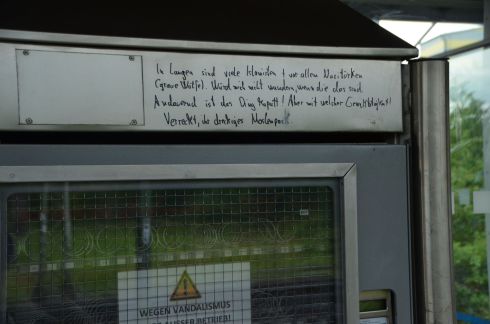 In Langen sind viele Islamisten + vor allen Nazitürken
(Graue Wölfe). Würd mich nicht wundern, wenn die das sind.
Andauernd ist das Ding kaputt! Aber mit welcher
Verreckt, ihr dreckiges Moslempack.
WEGEN VANDALISMUS
AUSSER BETRIEB!